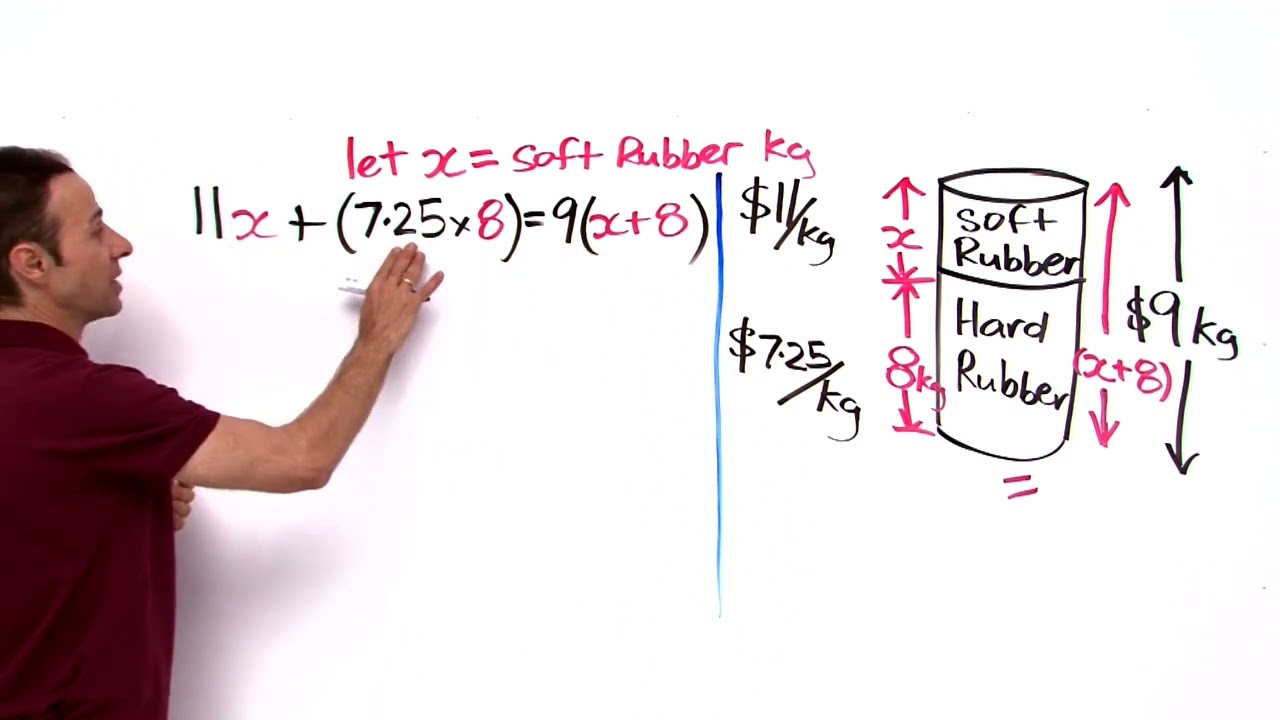 let x = soft Rubber kg
11x + (7.25 × 8) = 9(x + 8)
$11/kg
$7.25/kg
x
8kg
soft
Rubber
Hard
Rubber
(x+8)
$9 kg
=